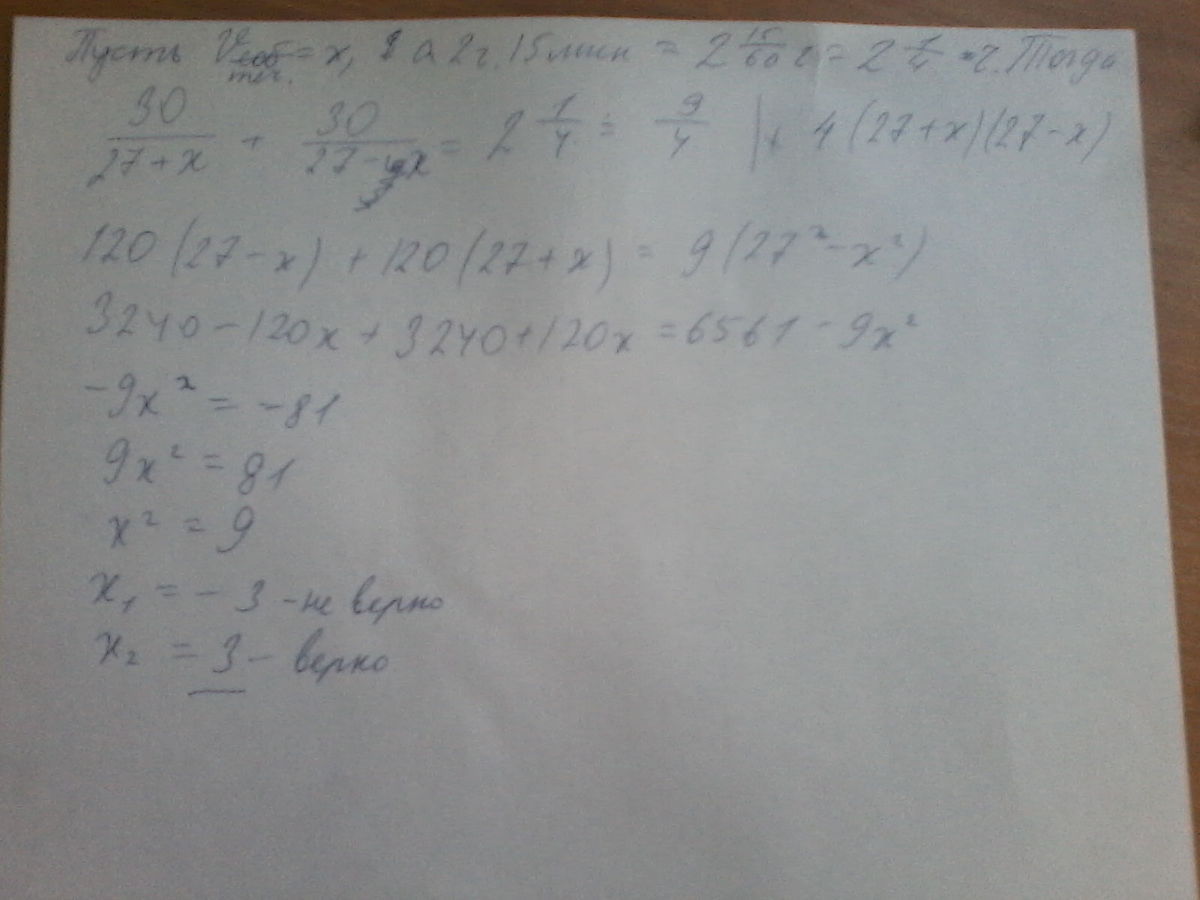 Пусть V теч. = x, а 2ч. 15 мин = 2 15/60 ч = 2 1/4 ч. Тогда
30/(27+x) + 30/(27-x) = 2 1/4 = 9/4 | × 4(27+x)(27-x)
120(27-x) + 120(27+x) = 9(27² - x²)
3240 - 120x + 3240 + 120x = 6561 - 9x²
-9x² = -81
9x² = 81
x² = 9
x₁ = -3 - не верно
x₂ = 3 - верно